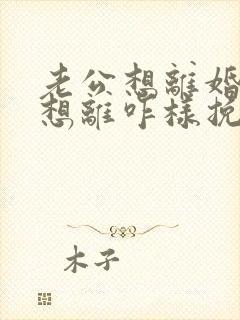 老公想離婚
想離咋樣挽
木子